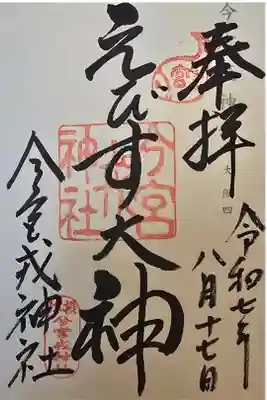 奉拝
令和七年
八月十七日
えびす大神
今宮戎神社